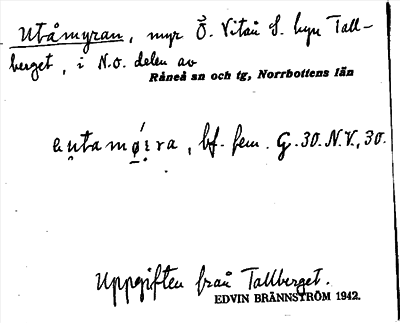 Utåmyran, myr Ö. Vitån S. byn Tall-
berget, i N.O. delen av
Råneå sn och tg, Norrbottens län
bf. fem. G.30.N.V.,30.
Uppgiften från Tallberget.
EDVIN BRÄNNSTRÖM 1942.